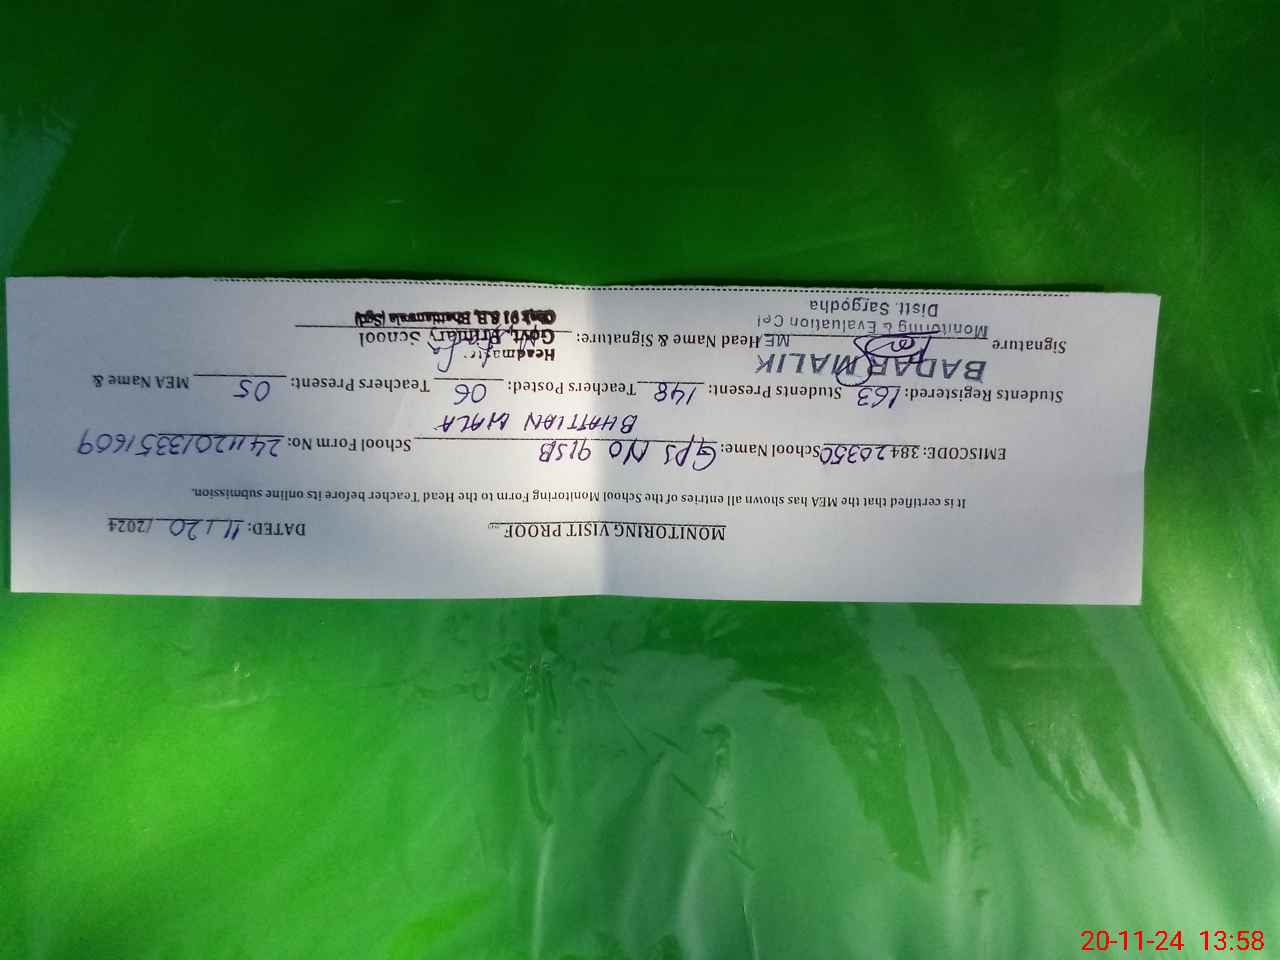 MONITORING VISIT PROOF
DATED: 11/20/2024
It is certified that the MEA has shown all entries of the School Monitoring Form to the Head Teacher before its online submission.
EMISCODE: 38420350 School Name: GPS NO 91SB School Form No: 24112013351609
BHATTIAN WALA
Students Registered: 163 Students Present: 148 Teachers Posted: 06 Teachers Present: 05 MEA Name &
BADAR MALIK
Signature MEA Head Name & Signature:
Monitoring & Evaluation Cell
Distt. Sargodha
Headmaster
Govt. Primary School
Chak 91 S.B, Bhattianwala (Sgd)
20-11-24 13:58